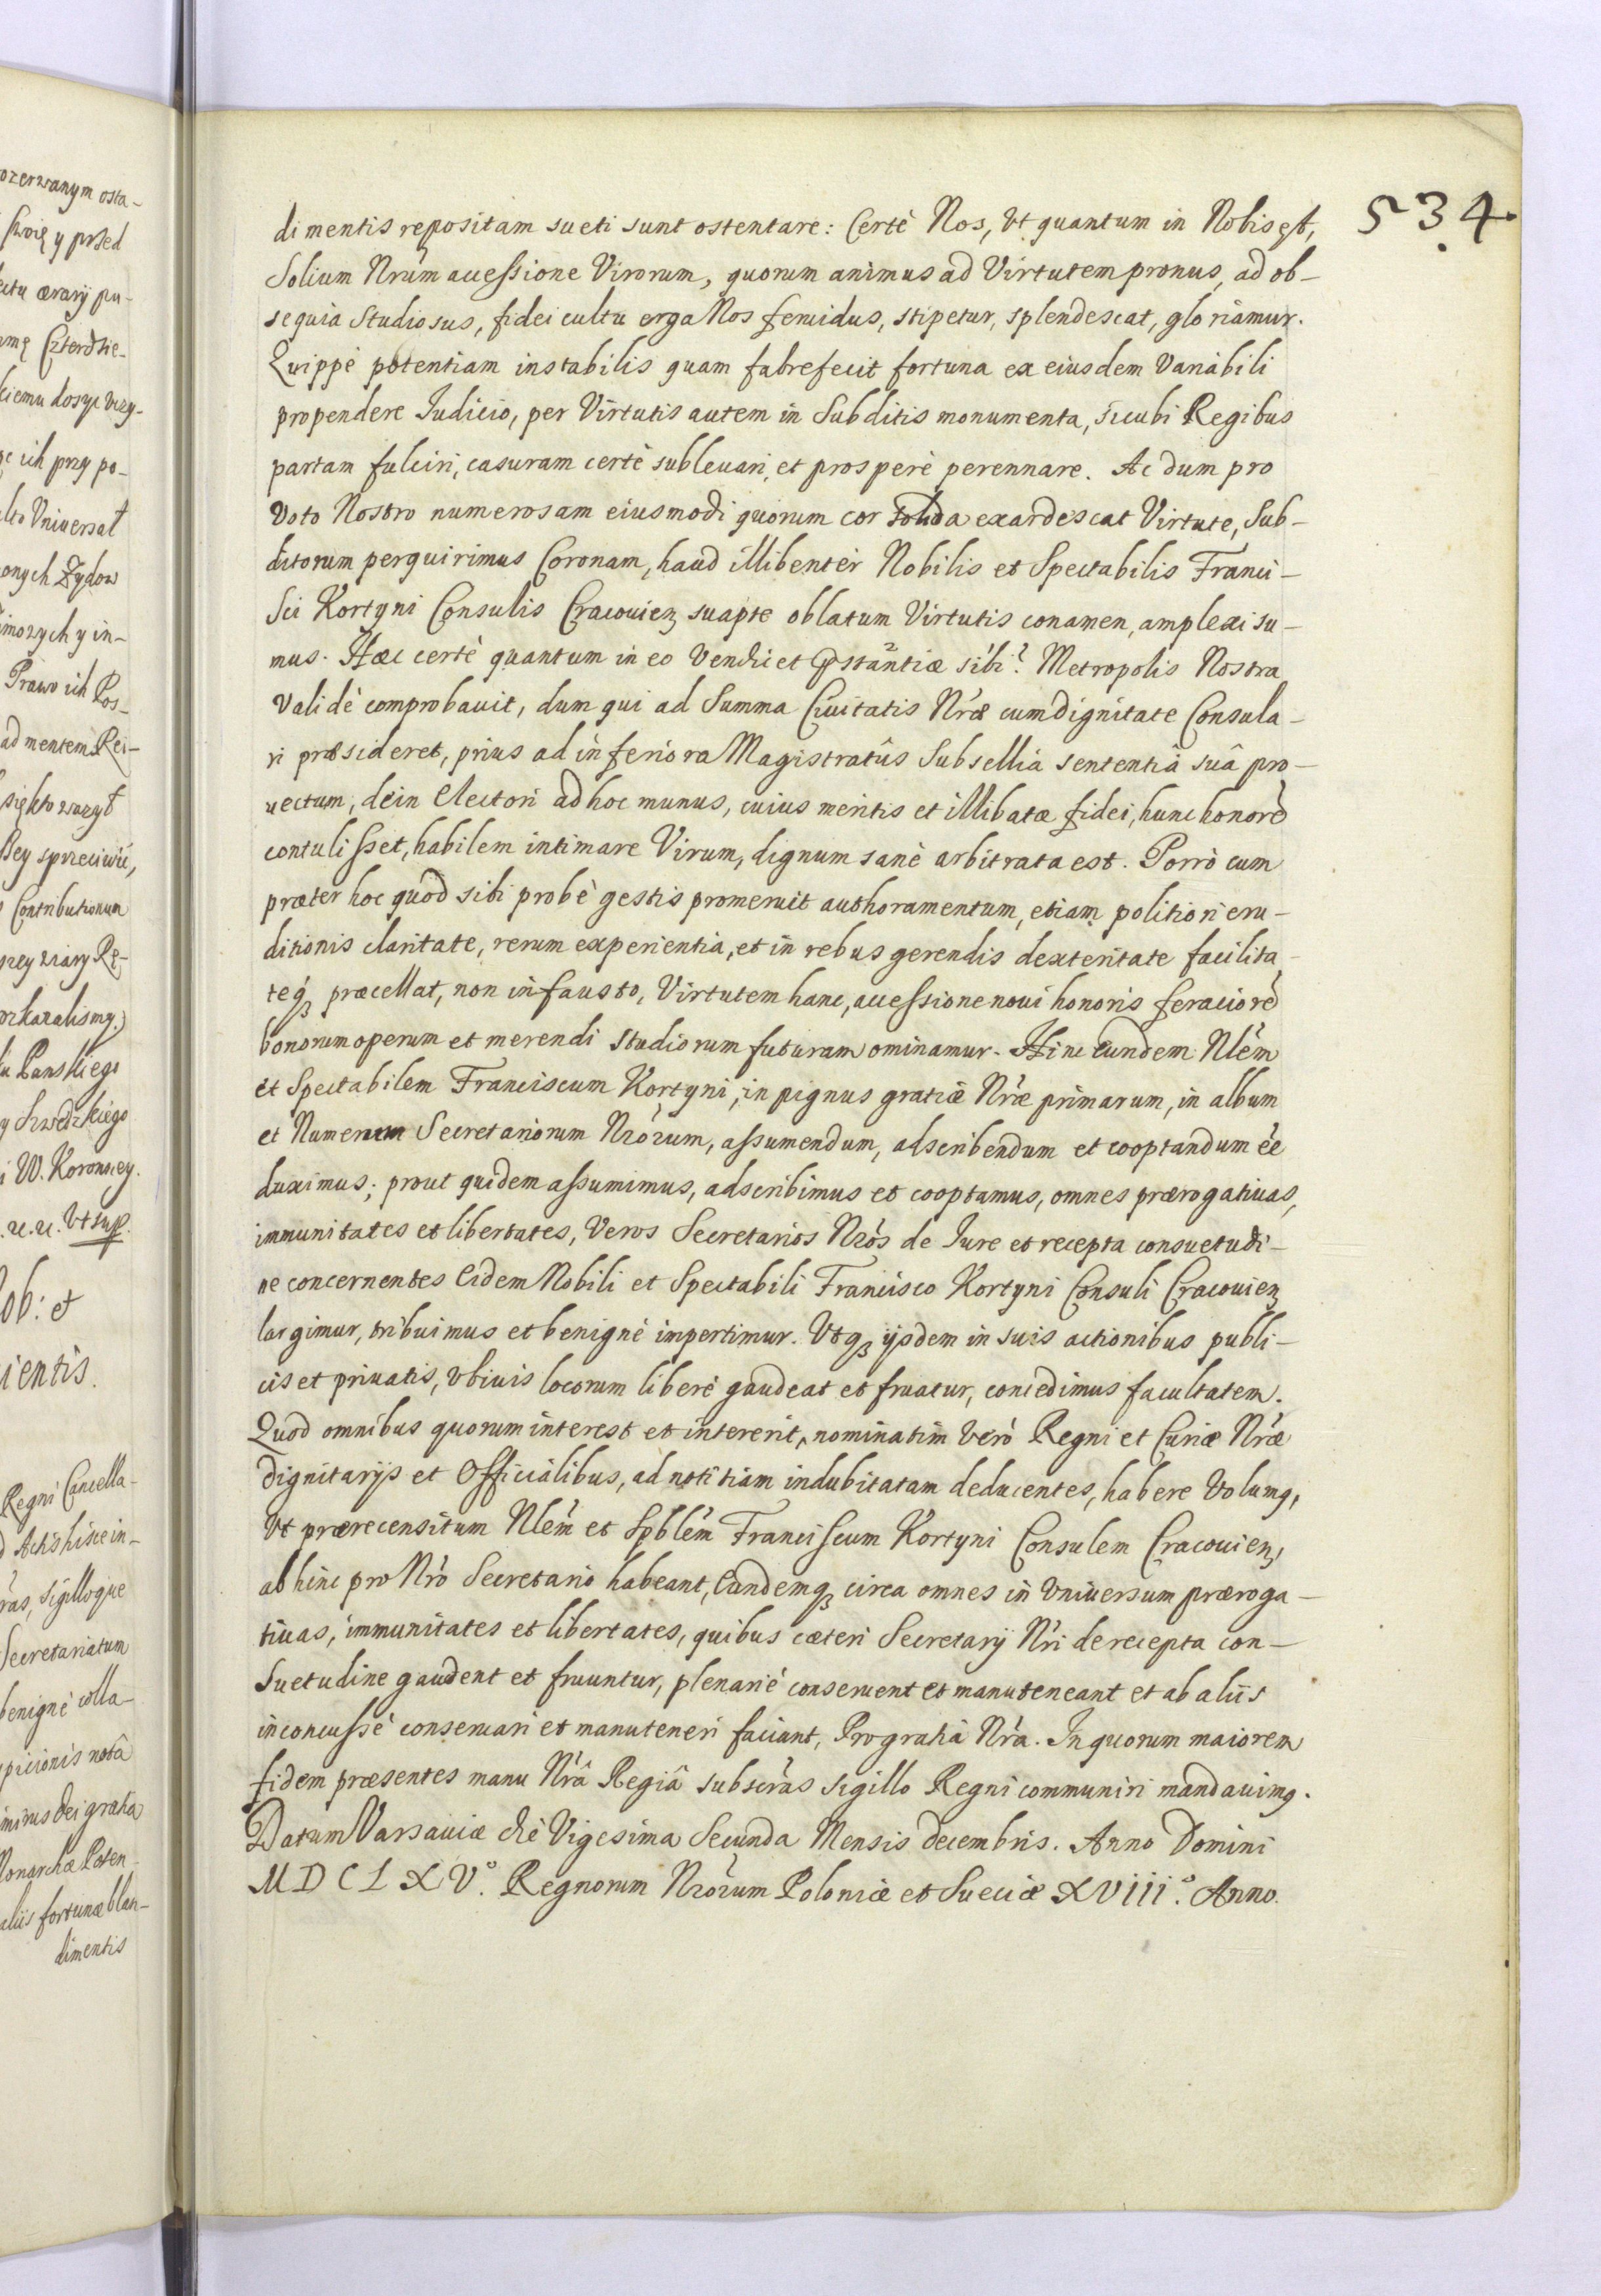 534
dimentis repositam sueti sunt ostentare: Certè Nos, Vt quantum in Nobis est,
Solium Nrum accessione Virorum, quorum animus ad Virtutem pronus, ad ob-
sequia Studiosus, fidei cultu erga Nos feruidus, stipetur, splendescat, gloriamur.
Quippè potentiam instabilis quam fabrefecit fortuna ex eiusdem Variabili
propendere Iudicio, per Virtutis autem in Subditis monumenta, sicubi Regibus
partam fulciri, casuram certè subleuari, et prosperè perennare. Ac dum pro
Voto Nostro numerosam eiusmodi quorum cor solida exardescat Virtute, Sub-
ditorum perquirimus Coronam, haud illibenter Nobilis et Spectabilis Franci-
sci Kortyni Consulis Cracouien suapte oblatum Virtutis conamen, amplexi su-
mus. Hæc certè quantum in eo Vendicet pstantiæ sibi? Metropolis Nostra
Validè comprobauit, dum qui ad Summa Ciuitatis Nræ cum dignitate Consula-
ri præsideret, prius ad inferiora Magistratûs Subsellia sententiâ suâ pro-
uectum, dein Electori ad hoc munus, cuius meritis et illibatæ fidei, hunc honorē
contulisset, habilem intimare Virum, dignum sanè arbitrata est. Porrò cum
præter hoc quod sibi probè gestis promeruit authoramentum, etiam politiori eru-
ditionis claritate, rerum experientia, et in rebus gerendis dexteritate facilita-
teq præcellat, non infausto, Virtutem hanc, accessione noui honoris feraciorē
bonorum operum et merendi studiorum futuram ominamur. Hinc eundem Nlem
et Spectabilem Franciscum Kortyni, in pignus gratiæ Nræ primarum, in album
et Numerum Secretariorum Nrorum, assumendum, adscribendum et cooptandum ee
duximus; prout quidem assumimus, adscribimus et cooptamus, omnes prærogatiuas,
immunitates et libertates, Veros Secretarios Nros de Iure et recepta consuetudi-
ne concernentes Eidem Nobili et Spectabili Francisco Kortyni Consuli Cracouien
largimur, tribuimus et benignè impertimur. Vtq ijsdem in suis actionibus publi-
cis et priuatis, Vbiuis locorum liberè gaudeat et fruatur, concedimus facultatem.
Quod omnibus quorum interest et intererit, nominatim Verò Regni et Curiæ Nræ
dignitarijs et Officialibus, ad notitiam indubitatam deducentes, habere Volumq,
Vt prærecensitum Nlem et Spblem Franciscum Kortyni Consulem Cracouien,
abhinc pro Nro Secretario habeant, Eandemq circa omnes in Vniuersum præroga-
tiuas, immunitates et libertates, quibus cæteri Secretarij Nri de recepta con-
suetudine gaudent et fruuntur, plenariè conseruent et manuteneant et ab aliis
inconcussè conseruari et manuteneri faciant, Pro gratia Nra. In quorum maiorem
fidem præsentes manu Nrâ Regiâ subscras sigillo Regni communiri mandauimq.
Datum Varsauiæ diè Vigesima Secunda Mensis decembris. Anno Domini
MDCLXVº. Regnorum Nrorum Poloniæ et Sueciæ XVIIIº. Anno.